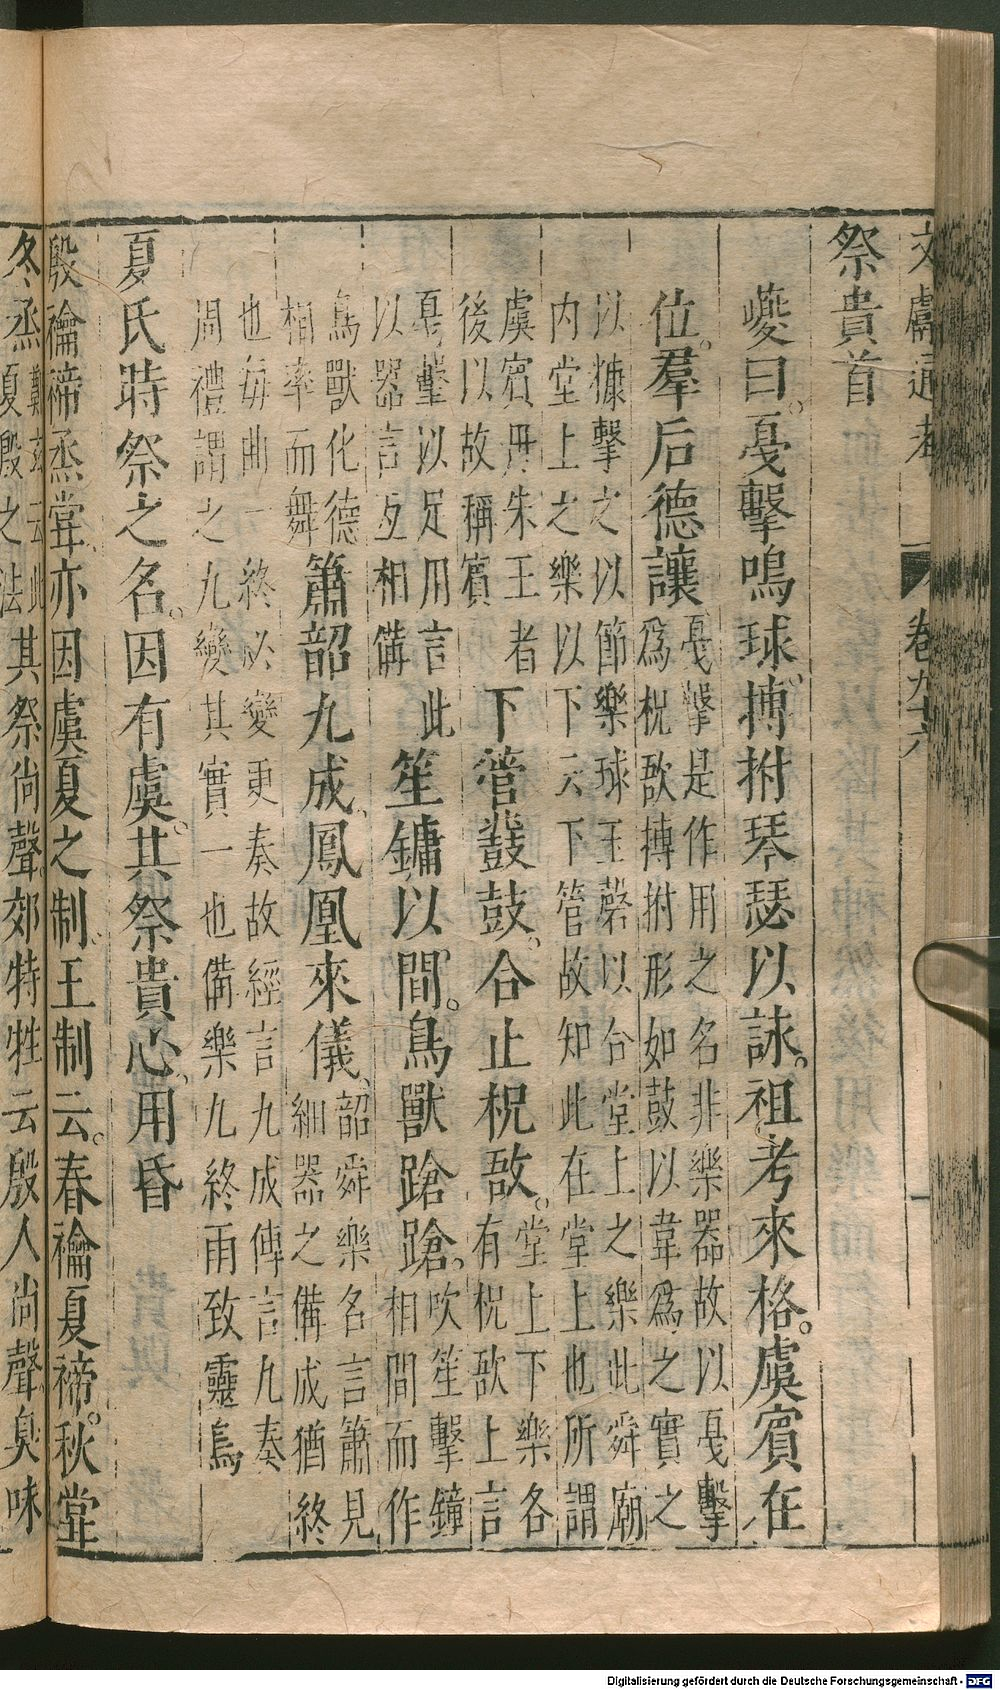 文獻通考
卷九十六
一
祭貴首
夔曰。戞擊鳴球。搏拊琴瑟以詠。祖考來格。虞賓在
位。羣后德讓
戞擊是作用之名非樂器故以戞擊
爲柷敔搏拊形如鼓以韋爲之實之
以糠擊之以節樂球玉磬以合堂上之樂此舜廟
内堂上之樂以下云下管故知此在堂上也所謂
虞賓丹朱王者
後以故稱賓
下管鼗鼓。合止柷敔。
堂上下樂各
有柷敔上言
戞擊以足用言此
以器言互相備
笙鏞以間。鳥獸蹌蹌。
吹笙擊鐘
相間而作
鳥獸化德
相率而舞
簫韶九成、鳳凰來儀、
韶舜樂名言簫見
細器之備成猶終
也每曲一終必變更奏故經言九成傳言九奏
周禮謂之九變其實一也備樂九終雨致靈鳥
夏氏時祭之名。因有虞。其祭貴心、用昏
殷禴禘烝嘗、亦因虞夏之制。王制云。春禴夏禘。秋嘗
冬烝
鄭玄云此
夏殷之法
其祭尚聲。郊特牲云殷人尚聲。臭味
Digitalisierung gefördert durch die Deutsche Forschungsgemeinschaft - DFG